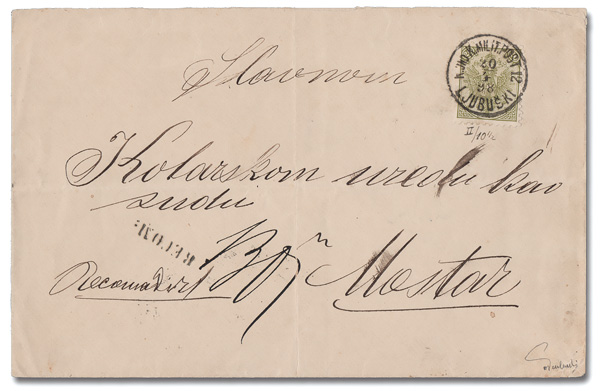 Slavnom
K. UND K. MILIT. POST 12
20
98
LJUBUŠKI
II/10½
Kotarskom uredu kao
sudu
RECOM:
Recomandirt
Mostar